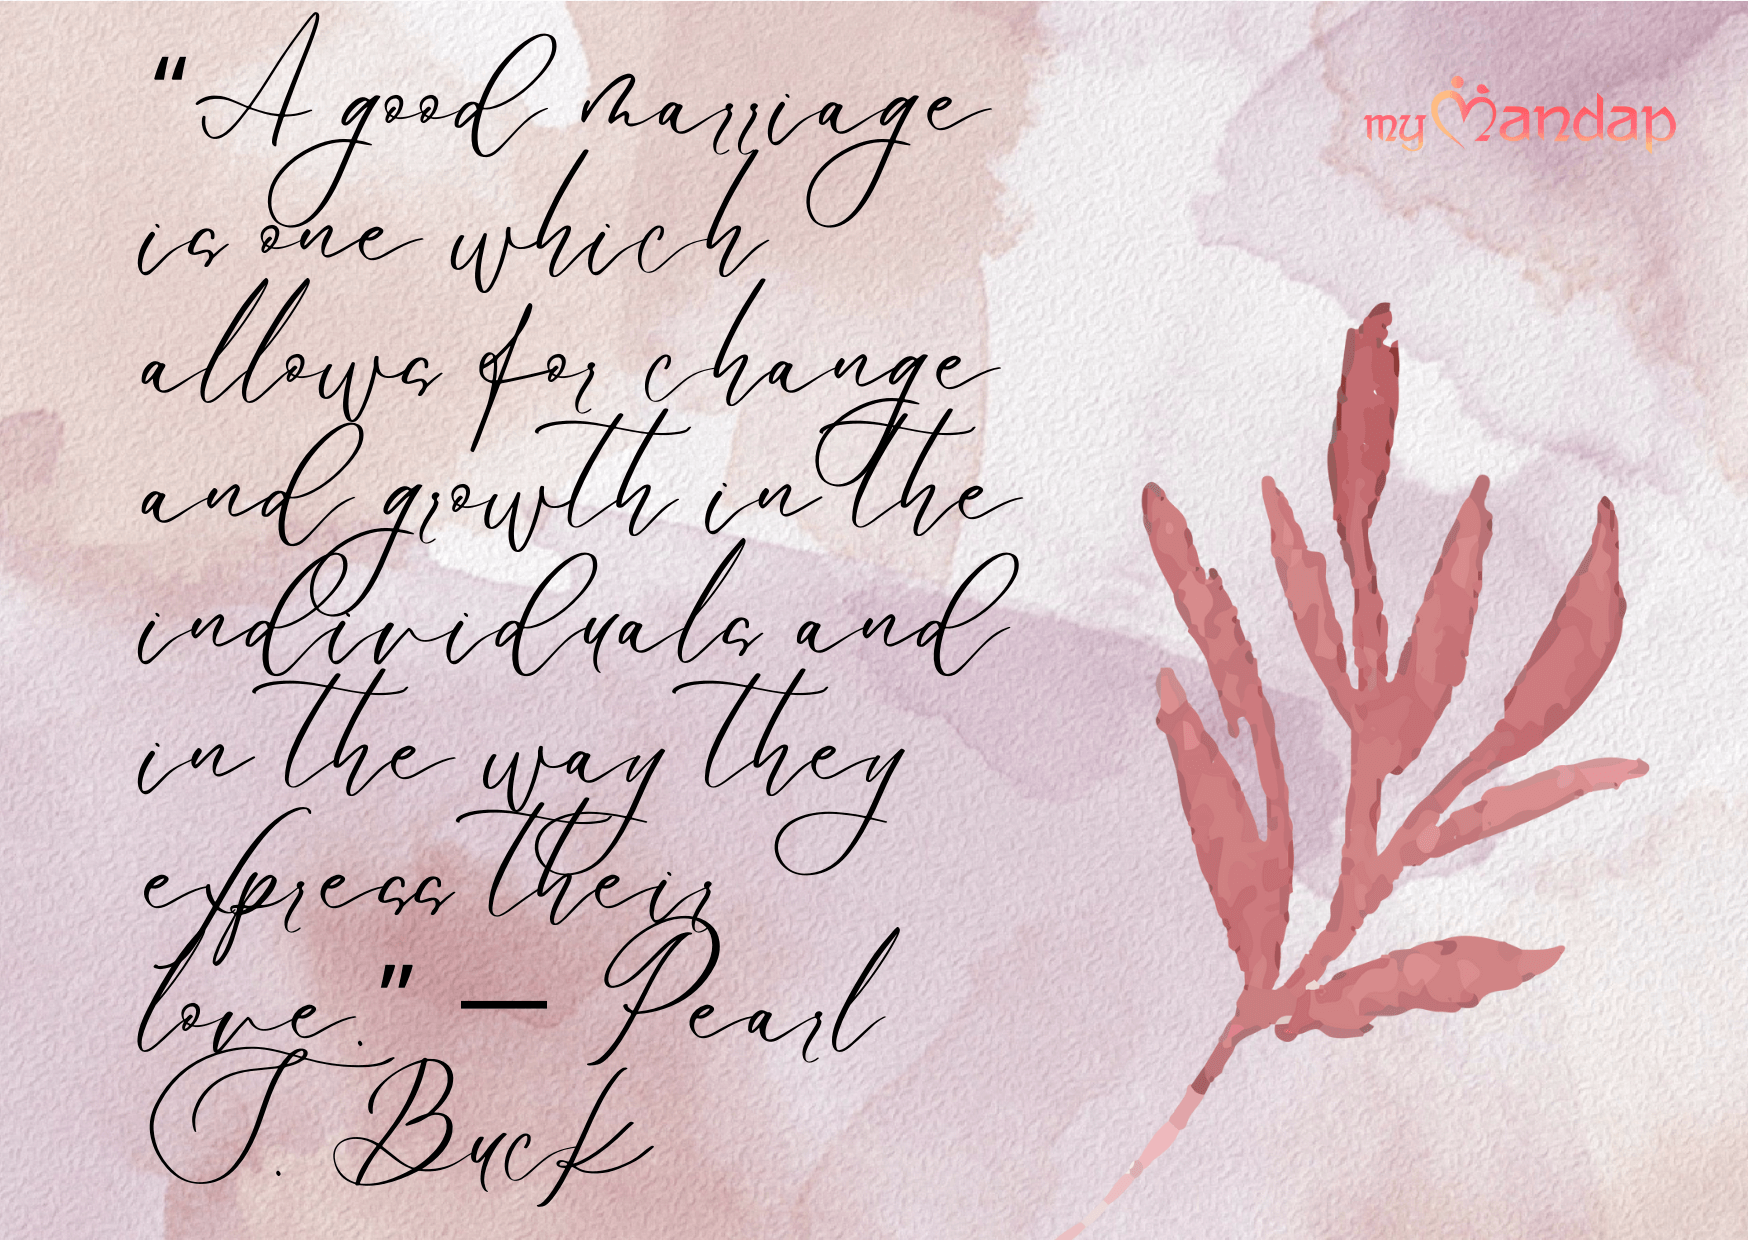 "A good marriage
is one which
allows for change
and growth in the
individuals and
in the way they
express their
love." — Pearl
S. Buck
myMandap